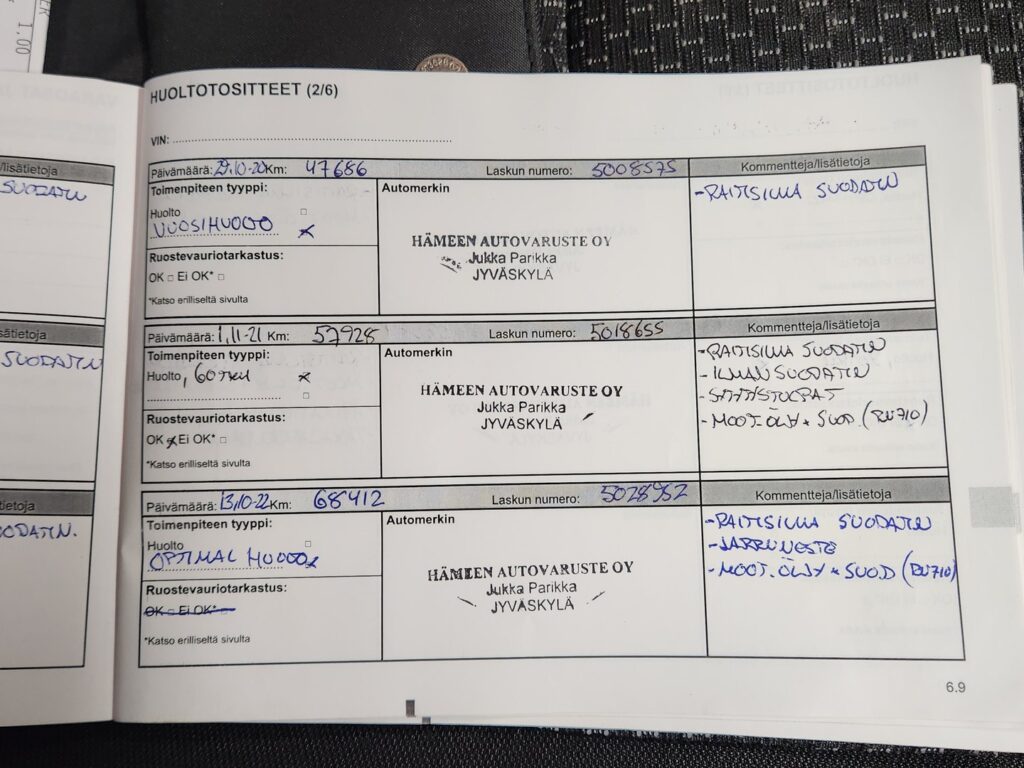 1.00
HUOLTOTOSITTEET (2/6)
VIN:
Päivämäärä: 29.10-20 Km: 47686 Laskun numero: 5008575 Kommentteja/lisätietoja
Toimenpiteen tyyppi: Automerkin
Huolto
VUOSIHUOLTO
-RAITISILMA SUODATIN
HÄMEEN AUTOVARUSTE OY
Jukka Parikka
JYVÄSKYLÄ
Ruostevauriotarkastus:
OK Ei OK*
*Katso erilliseltä sivulta
Päivämäärä: 1.11-21 Km: 57928 Laskun numero: 5018655 Kommentteja/lisätietoja
Toimenpiteen tyyppi: Automerkin
Huolto, 60 TKM
-RAITISILMA SUODATIN
-ILMANSUODATIN
-MOOT.ÖLJY + SUOD. (RN710)
HÄMEEN AUTOVARUSTE OY
Jukka Parikka
JYVÄSKYLÄ
Ruostevauriotarkastus:
OK Ei OK*
*Katso erilliseltä sivulta
Päivämäärä: 13.10-22 Km: 68412 Laskun numero: 5028952 Kommentteja/lisätietoja
Toimenpiteen tyyppi: Automerkin
Huolto
OPTIMAL HUOLTO
-RAITISILMA SUODATIN
-JARRUNESTE
-MOOT.ÖLJY + SUOD (RN710)
HÄMEEN AUTOVARUSTE OY
Jukka Parikka
JYVÄSKYLÄ
Ruostevauriotarkastus:
OK Ei OK*
*Katso erilliseltä sivulta
6.9
/lisätietoja
SUODATIN
sätietoja
SUODATIN
tietoja
UODATIN.